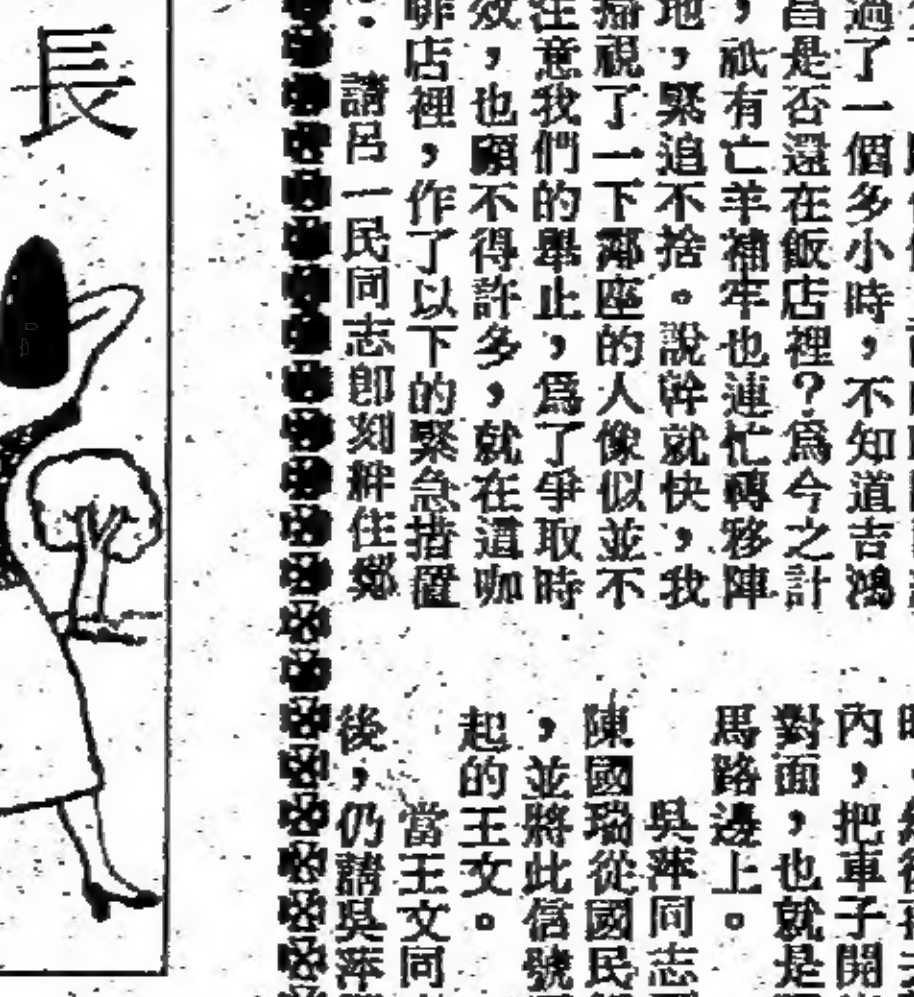 過了一個多小時，不知道吉鴻
昌是否還在飯店裡？爲今之計
，祇有亡羊補牢也連忙轉移陣
地，緊追不捨。說幹就快，我
掃視了一下鄰座的人像似並不
注意我們的舉止，爲了爭取時
效，也顧不得許多，就在這咖
啡店裡，作了以下的緊急措置
：請呂一民同志卽刻絆住鄭
內，把車子開
對面，也就是
馬路邊上。
吳萍同志
陳國瑞從國民
，並將此信號
起的王文。
當王文同
後，仍請吳萍
長